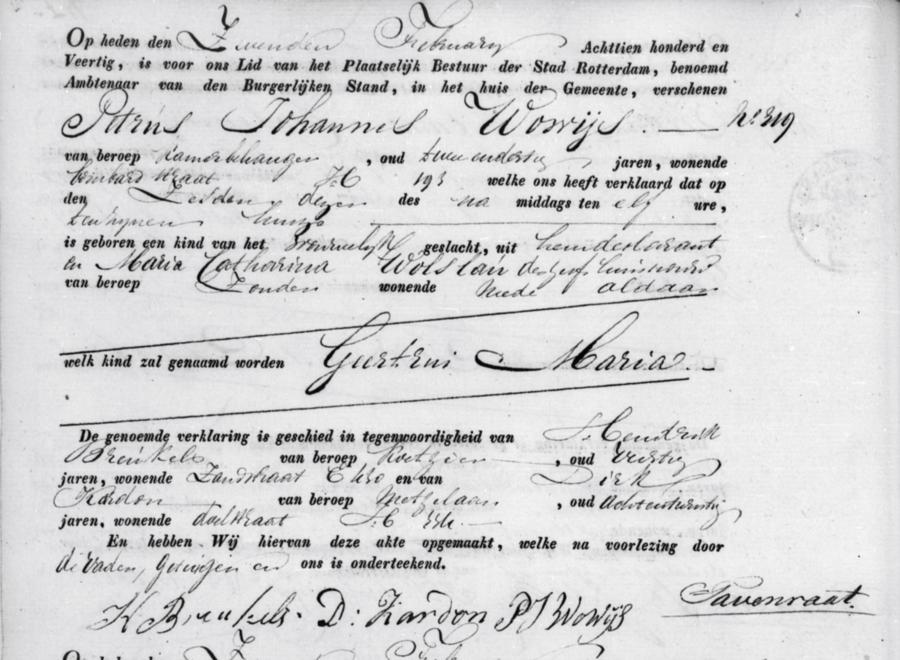 Op heden den Zevenden February Achttien honderd en
Veertig, is voor ons Lid van het Plaatselijk Bestuur der Stad Rotterdam, benoemd
Ambtenaar van den Burgerlijken Stand, in het huis der Gemeente, verschenen
Petrus Johannes Wowijs No 319
van beroep Kamerbehanger, oud twee en dertig jaren, wonende
Lombardstraat 193 welke ons heeft verklaard dat op
den Zesden dezer des na middags ten elf ure,
ten zijnen huize
is geboren een kind van het Vrouwelijk geslacht, uit hem declarant
en Maria Catharina Wolslau deszelfs huisvrouw
van beroep Zonder wonende mede aldaar
welk kind zal genaamd worden Geertrui Maria.
De genoemde verklaring is geschied in tegenwoordigheid van Hendrik
Breukels van beroep Koetsier, oud Veertig
jaren, wonende Zandstraat en van Dirk
Kardon van beroep Metzelaar, oud Achtentwintig
jaren, wonende
En hebben Wij hiervan deze akte opgemaakt, welke na voorlezing door
de Vader, Getuigen en ons is onderteekend.
H Breukels. D: Kardon PJ Wowijs Tavenraat.